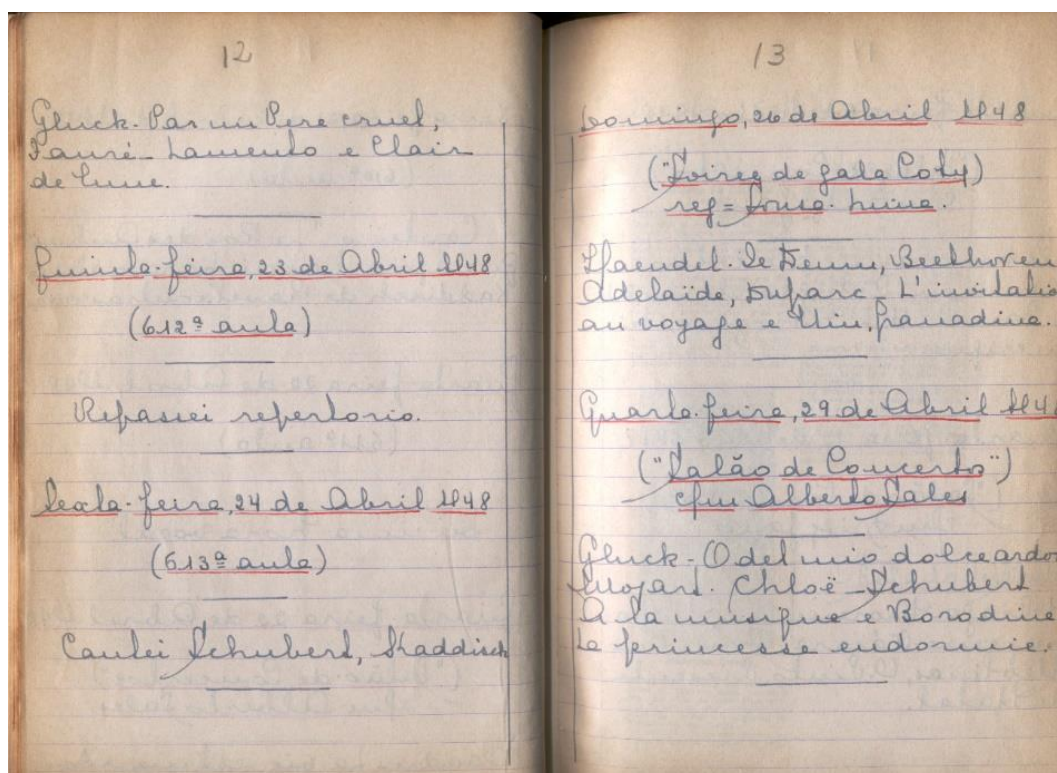 12
Gluck. Par un Pere cruel,
Fauré - Lamento e Clair
de lune.
Quinta-feira, 23 de Abril 1948
(612ª aula)
Repassei repertorio.
Sexta-feira, 24 de Abril 1948
(613ª aula)
Cantei Schubert, Kaddisch
13
Domingo, 26 de Abril 1948
("Soirée de gala Coty)
reg = Souza. Lima.
Haendel. Te Deum, Beethoven
Adelaïde, Duparc - L'invitatio
au voyage e Nin, Granadina.
Quarta-feira, 29 de Abril 194
("Salão de Concerto")
com Alberto Sales
Gluck - O del mio dolce ardor
Mozart. Chloë - Schubert
A la musique e Borodine
La princesse endormie.